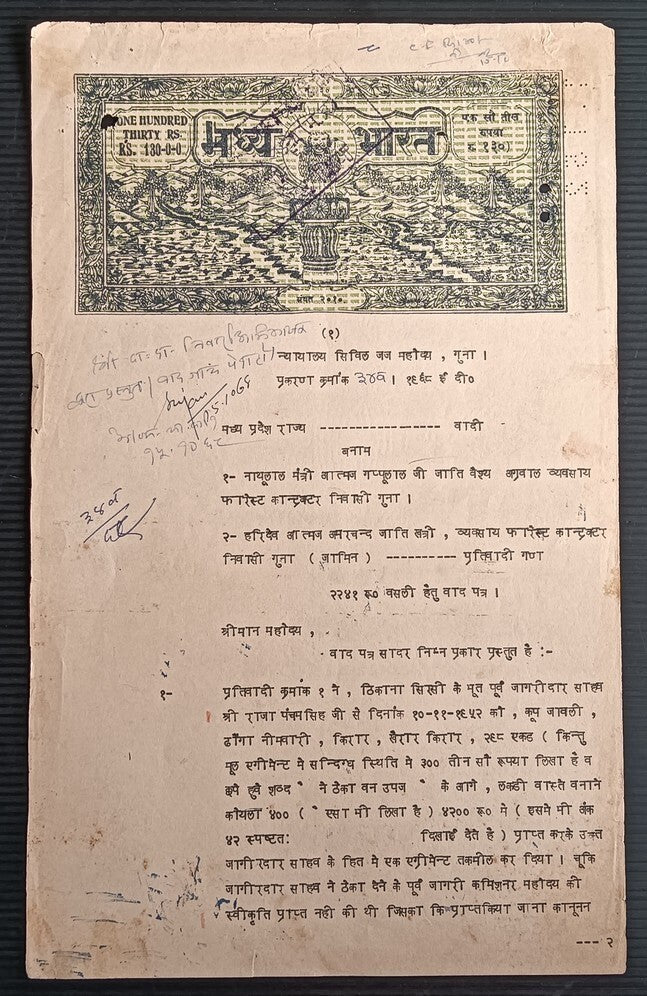 ONE HUNDRED
THIRTY RS.
RS. 130-0-0
मध्य भारत
एक सौ तीस
रुपया
रु. १३०)
सम्वत २०१०.
(१)
न्यायालय सिविल जज महोदय , गुना ।
प्रकरण क्रमांक ३४ब । १९६८ ई दी०
मध्य प्रदेश राज्य ------------------ वादी
बनाम
१- नाथूलाल मंत्री आत्मज गप्पूलाल जी जाति वैश्य अग्रवाल व्यवसाय
फारेस्ट कान्ट्रक्टर निवासी गुना ।
२- हरिदेव आत्मज अमरचन्द जाति खत्री , व्यवसाय फारेस्ट कान्ट्रक्टर
निवासी गुना ( जामिन ) ----------- प्रतिवादी गण
२२४१ रू० वसली हेतु वाद पत्र ।
श्रीमान महोदय ,
वाद पत्र सादर निम्न प्रकार प्रस्तुत है :-
१- प्रतिवादी क्रमांक १ ने , ठिकाना सिरसी के भूत पूर्व जागरीदार साहब
श्री राजा पंचमसिंह जी से दिनांक १०-११-१९५२ को , कूप जावली ,
ढोंगा नीमवारी , किरार , खैरार किरार , २९८ एकड ( किन्तु
मूल एगीमेन्ट मे सन्दिग्ध स्थिति मे ३०० तीन सौ रूपया लिखा है व
छपे हुवे शब्द " ने ठेका वन उपज " के आगे , लकडी वास्ते बनाने
कोयला ४०० ( " एसा भी लिखा है ) ४२०० रू० मे ( इसमे भी अंक
४२ स्पष्टत: दिखाई देते है ) प्राप्त करके उक्त
जागीरदार साहब के हित मे एक एग्रीमेन्ट तकमील कर दिया । चूकि
जागीरदार साहब ने ठेका देने के पूर्व जागरी कमिशनर महोदय की
स्वीकृति प्राप्त नही की थी जिसका कि प्राप्तकिया जाना कानूनन
--- २